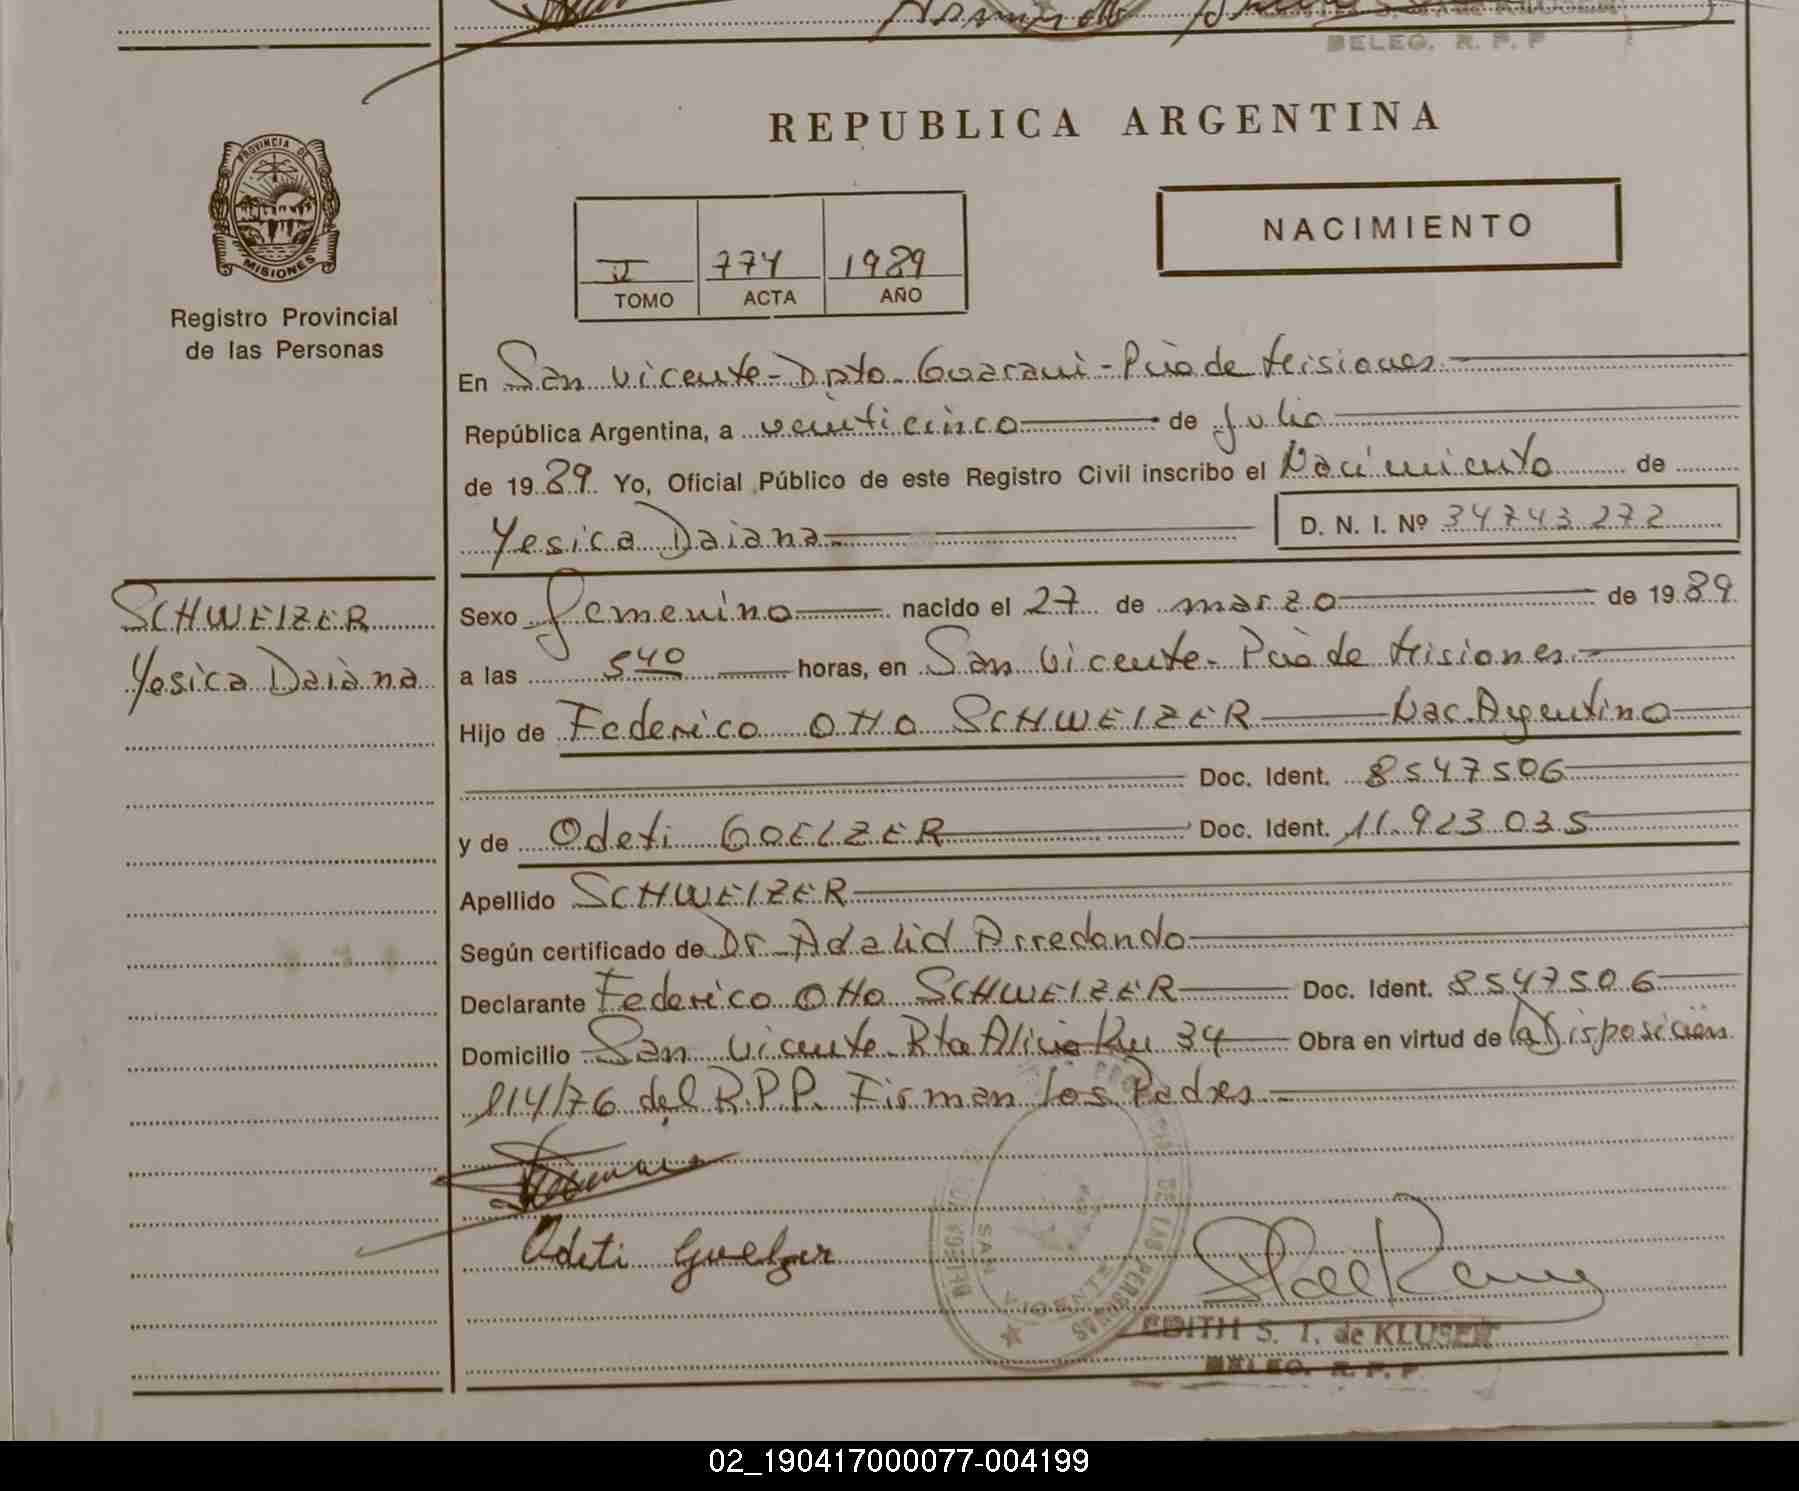 DELEG. R. P. P
REPUBLICA ARGENTINA
PROVINCIA DE
MISIONES
Registro Provincial
de las Personas
NACIMIENTO
II 774 1989
TOMO ACTA AÑO
En San Vicente - Dpto. Guarani - Pcia de Misiones
República Argentina, a veinticinco de Julio
de 1989. Yo, Oficial Público de este Registro Civil inscribo el Nacimiento de
Yesica Daiana D. N. I. Nº 34743272
SCHWEIZER
Yesica Daiana
Sexo Femenino nacido el 27 de marzo de 1989
a las 5 40 horas, en San Vicente - Pcia de Misiones
Hijo de Federico Otto SCHWEIZER Nac. Argentino
Doc. Ident. 8547506
y de Odeti GOELZER Doc. Ident. 11.923.035
Apellido SCHWEIZER
Según certificado de Dr. Adalid Arredondo
Declarante Federico Otto SCHWEIZER Doc. Ident. 8547506
Domicilio San Vicente Rta Alicia Km 34 Obra en virtud de la Disposición
114/76 del R.P.P. Firman los Padres
Odeti Goelzer
DE LAS PERSONAS
SAN
EDITH S. T. de KLUSER
DELEG. R. P. P
02_190417000077-004199